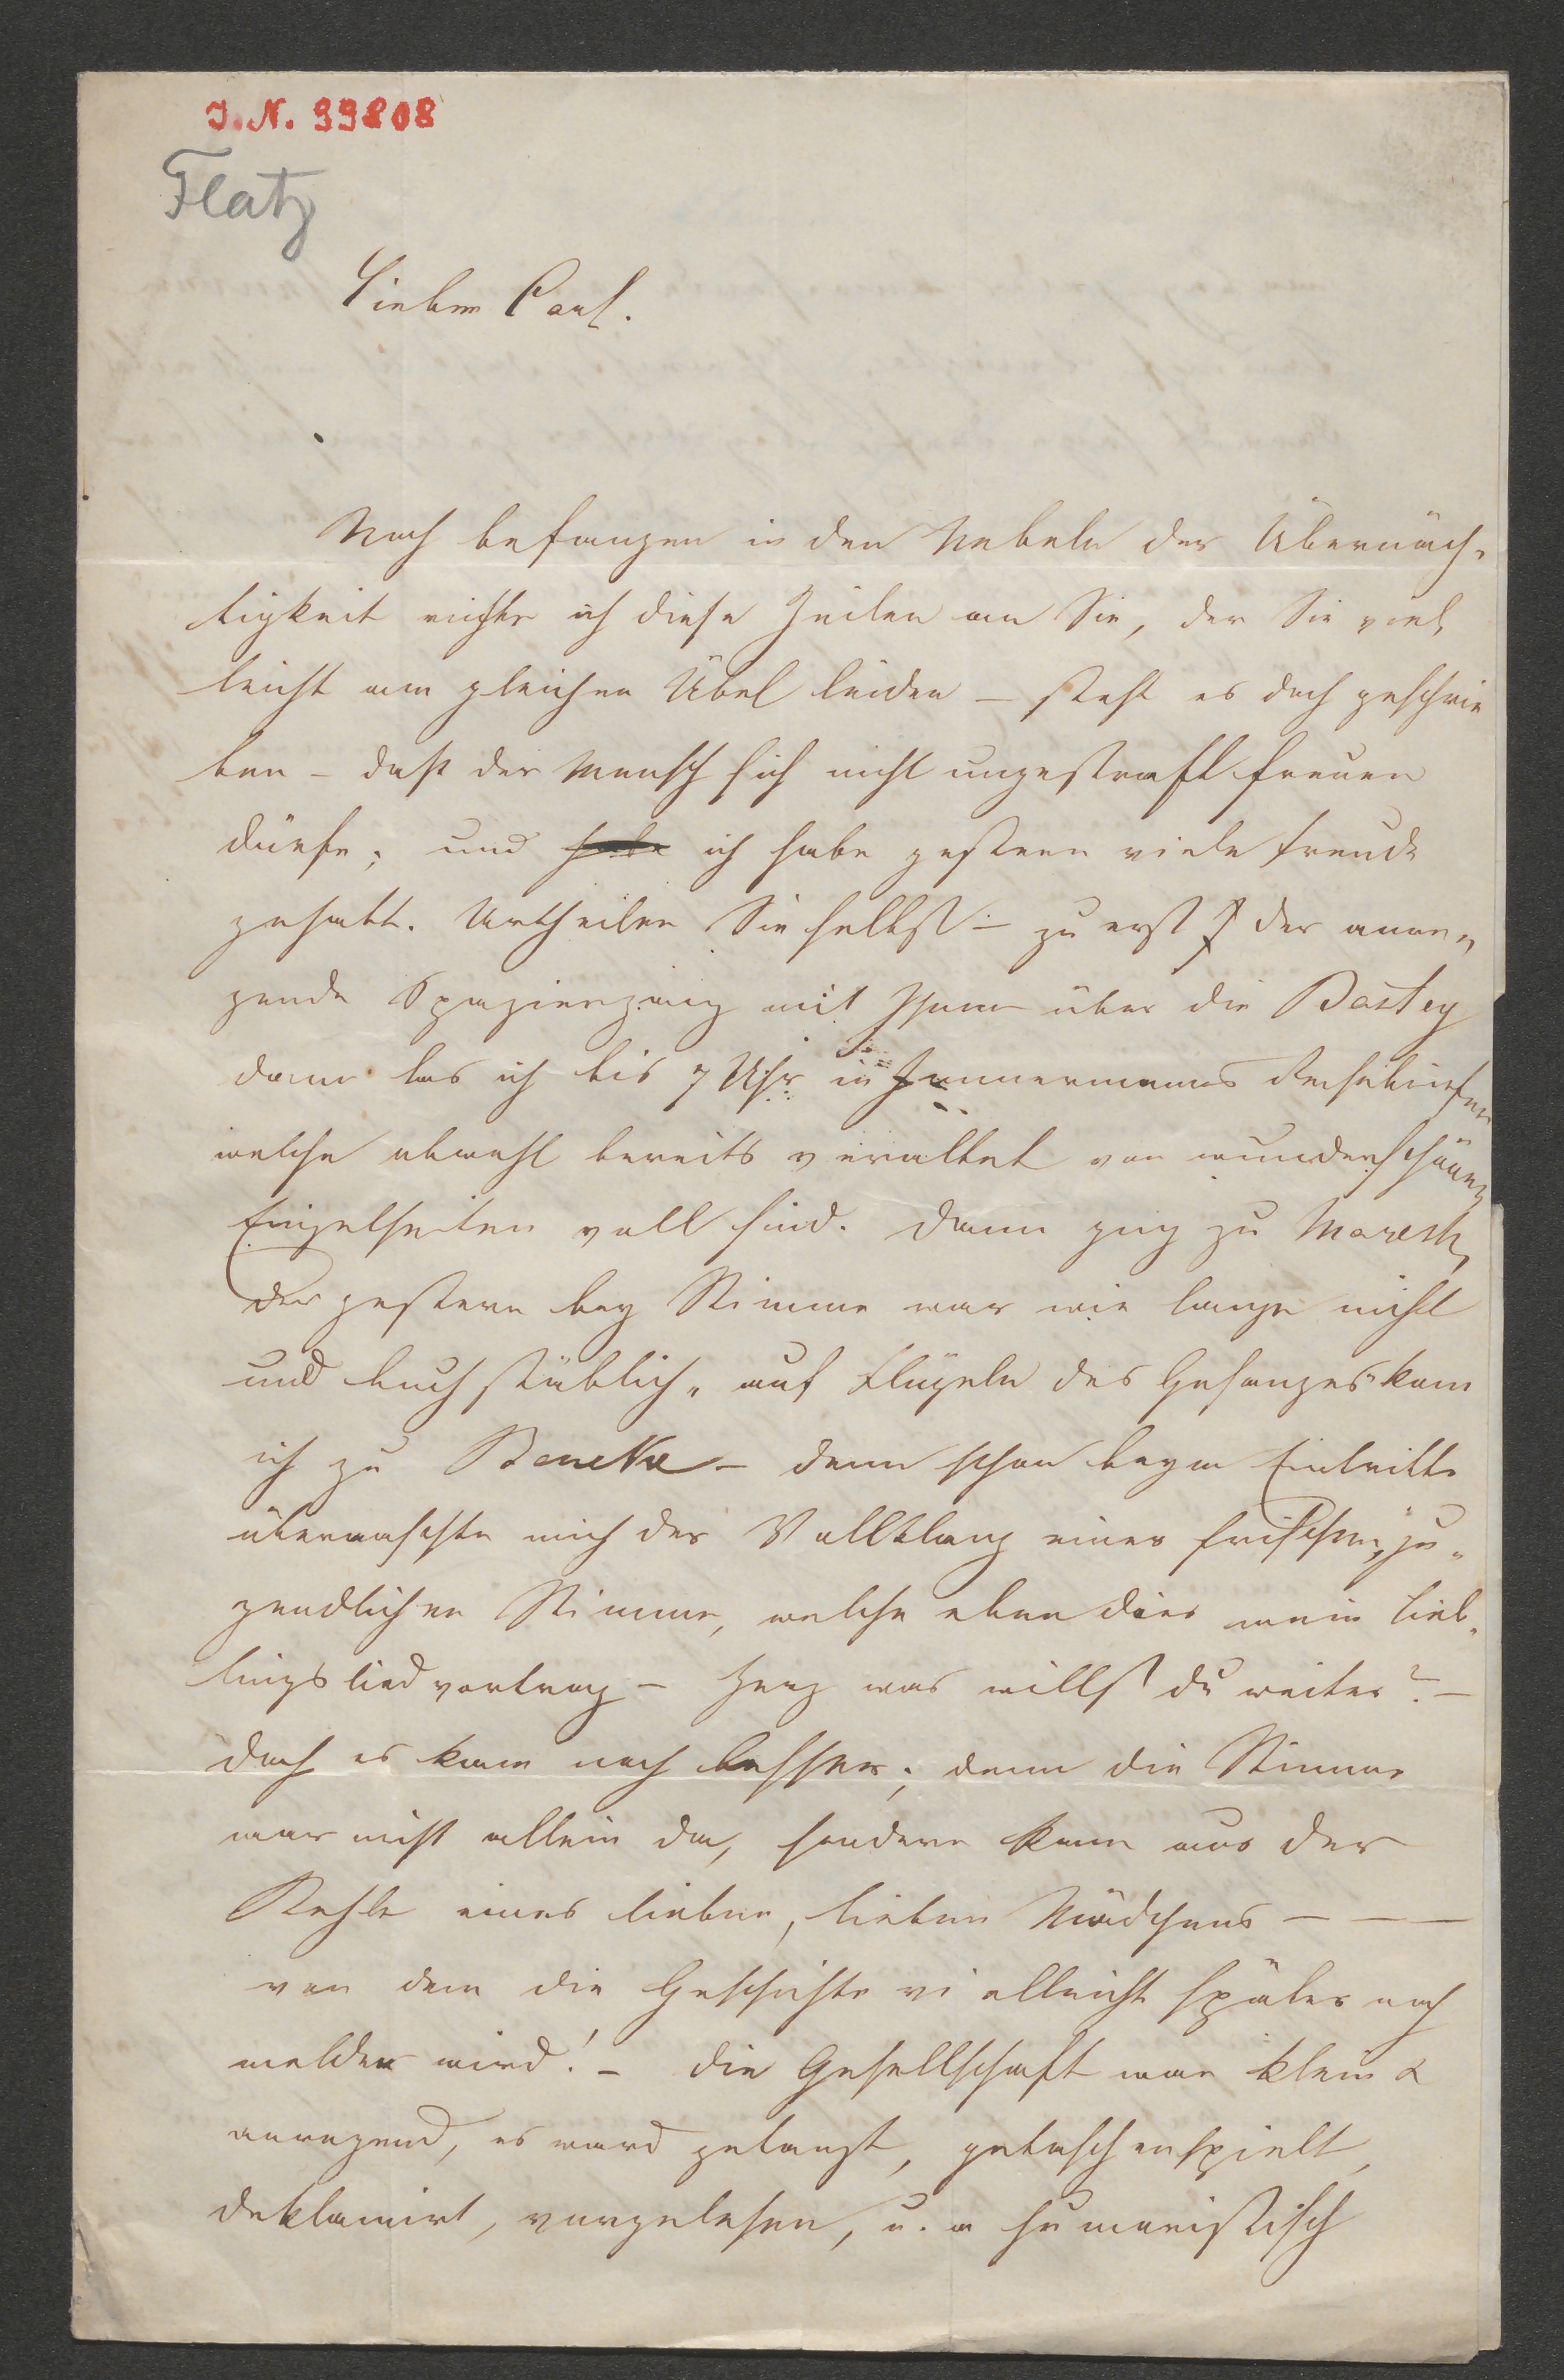 J. N. 99808
Flatz
Lieber Carl.
Noch befangen in den Nebeln der Übernäch-
tigkeit richte ich diese Zeilen an Sie, der Sie viel-
leicht am gleichen Übel leiden – steht es doch geschrie
ben – daß der Mensch sich nicht ungestraft freuen
dürfe; und habe ich habe gestern viele Freude
gehabt. Urtheilen Sie selbst – zu erst der anre-
gende Spaziergang mit Ihnen über die Bastey
dann las ich bis 7 Uhr in Immermanns Reisebriefen
welche obwohl bereits veraltet von wunderschönen
Einzelheiten voll sind. Dann ging zu Maresch,
der gestern bey Stimme war wie lange nicht
und buchstäblich „auf Flügeln des Gesanges“ kam
ich zu Beneke – denn schon beym Eintritte
überraschte mich der Vollklang einer frischen, ju-
gendlichen Stimme, welche eben dies mein Lieb-
lingslied vortrug – Herz was willst du weiter? –
doch es kam noch besser; denn die Stimme
war nicht allein da, sondern kam aus der
Kehle eines lieben, lieben Mädchens – – –
von dem die Geschichte vielleicht später noch
melden wird! – Die Gesellschaft war klein &
anregend, es ward getanzt, getaschenspielt,
deklamirt, vorgelesen, u. a humoristisch